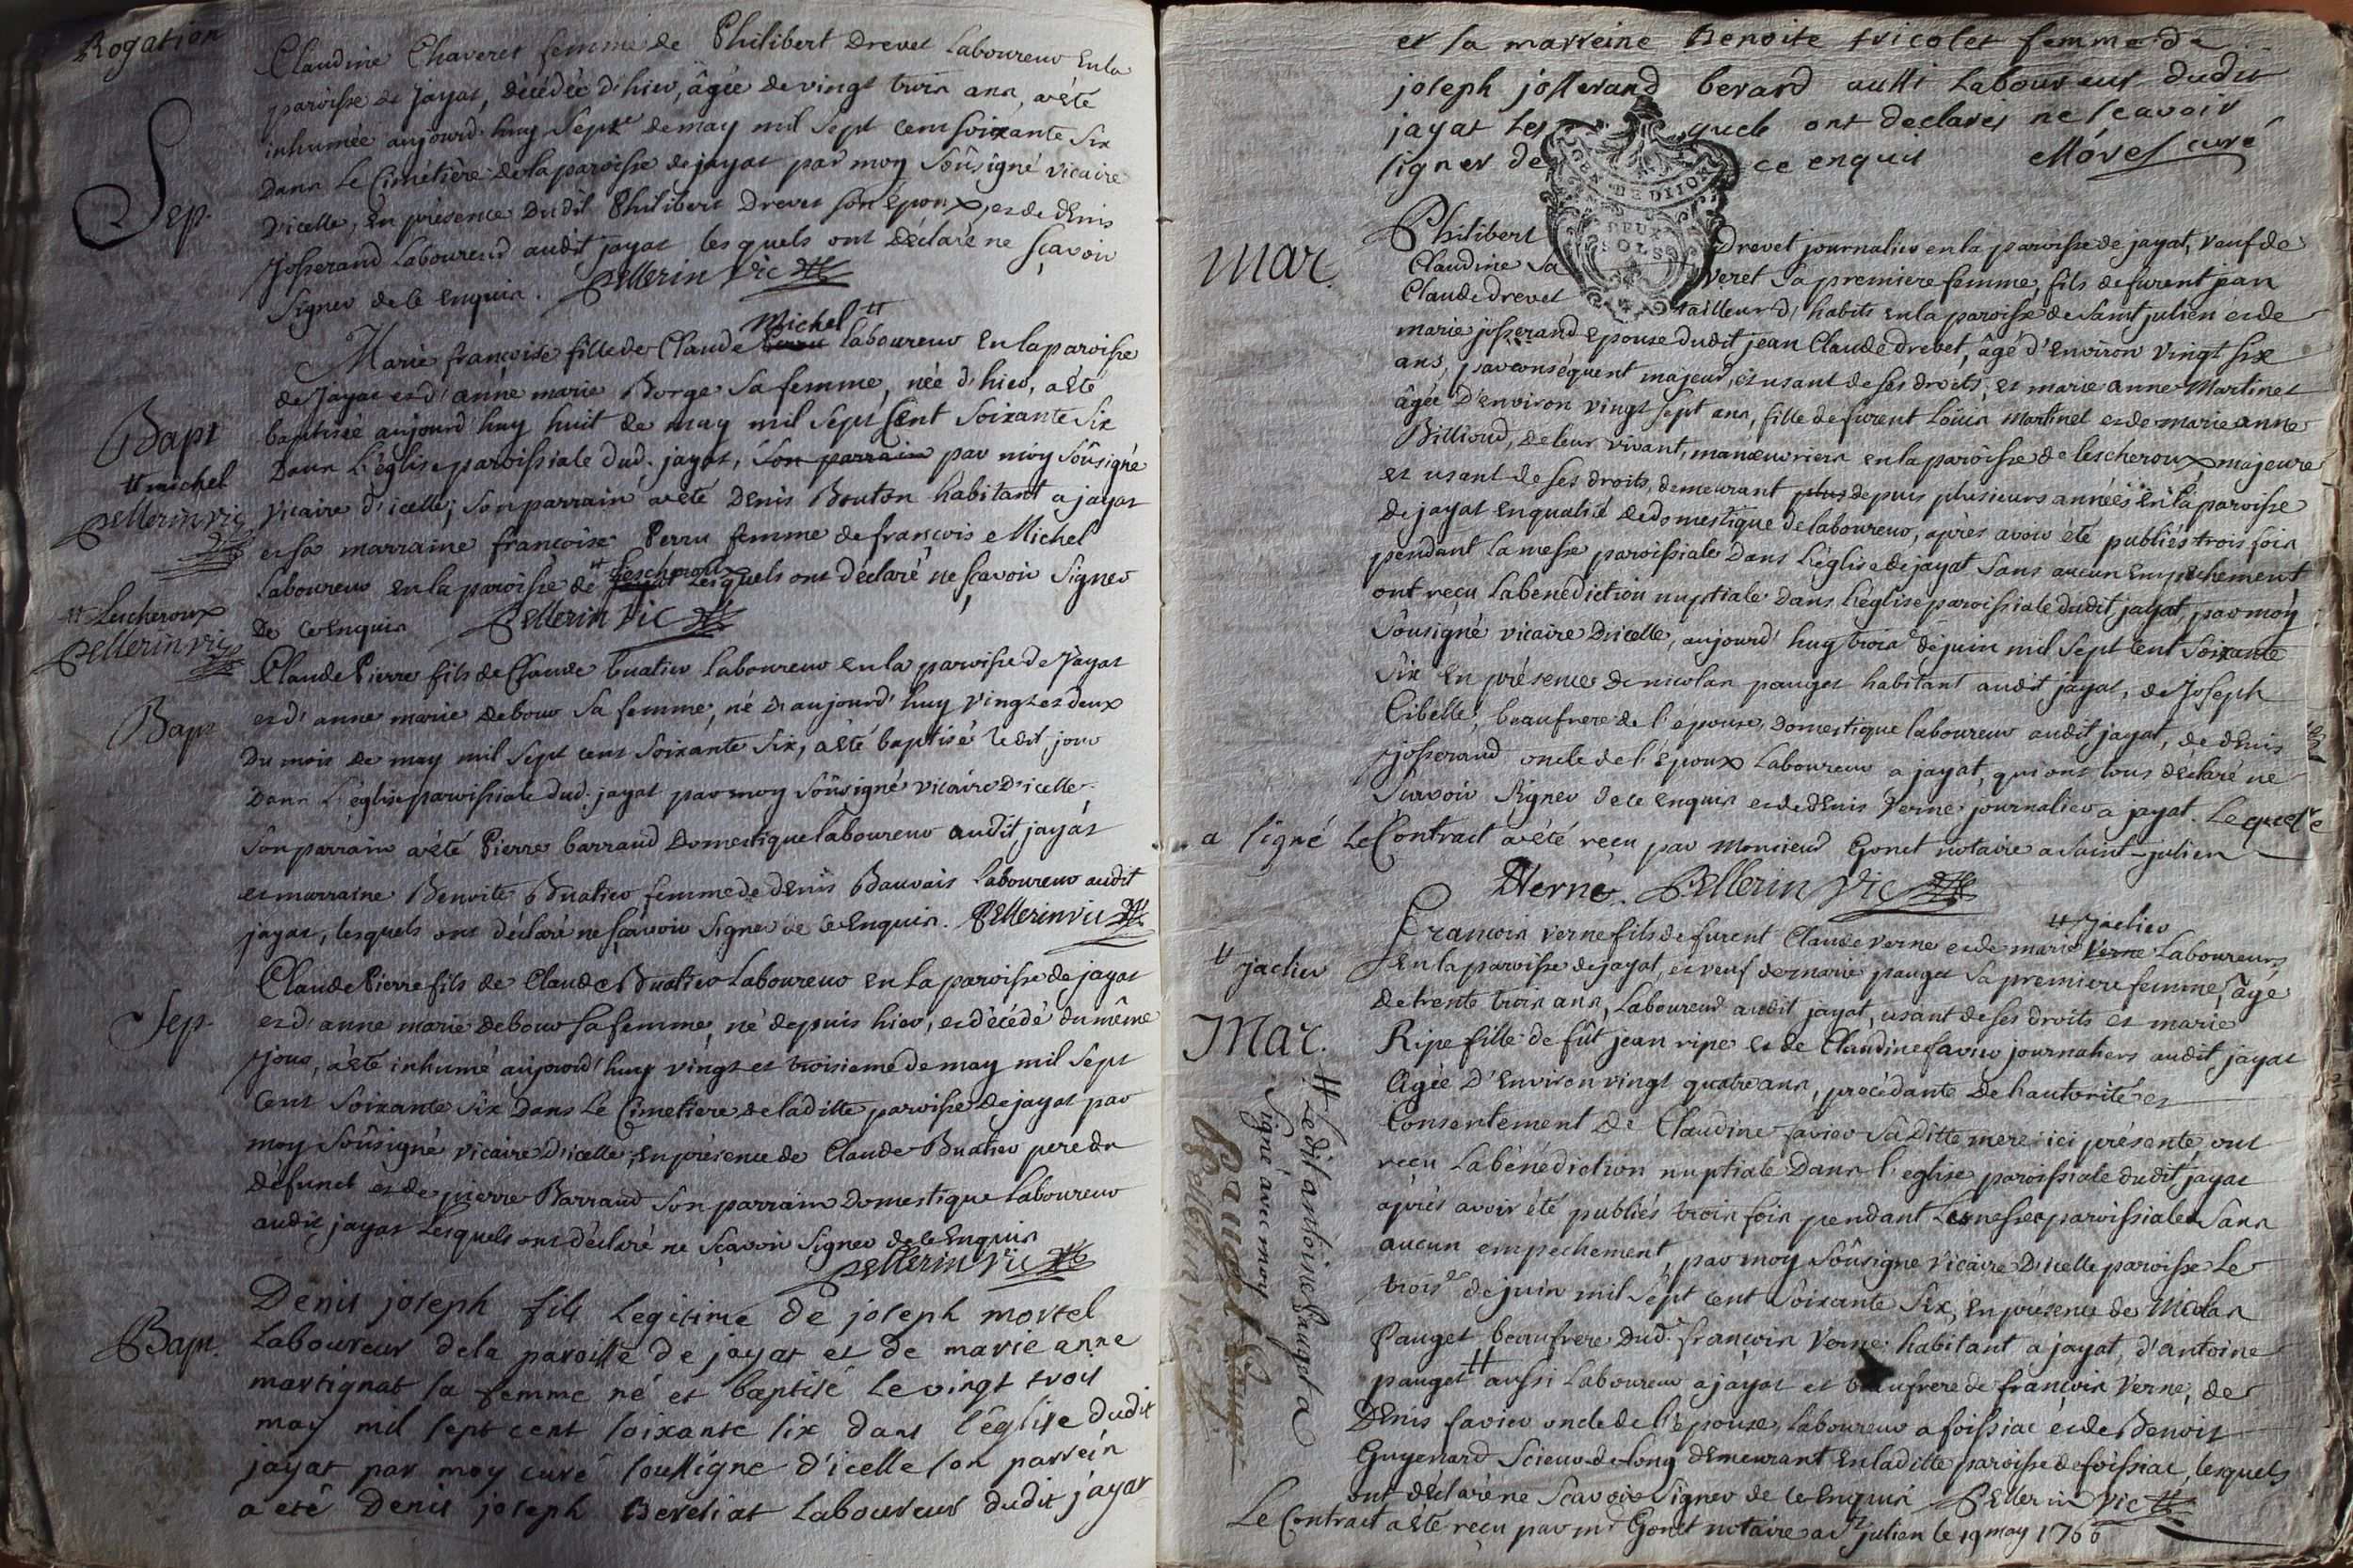 Rogation
Claudine Chaveret femme de Philibert Drevet laboureur en la
paroisse de Jayat, décédée d'hier, âgée de vingt trois ans, a été
inhumée aujourd'huy sept.e de may mil sept cent soixante six
Sep.
dans le cimétière de la paroisse de jayat par moy soûsigné vicaire
d'icelle, en présence dudit Philibert Drevet son époux, et de denis
josserand laboureur audit jayat lesquels ont déclaré ne sçavoir
signer de ce enquis. Pellerin vic
Michel
Marie françoise fille de Claude laboureur en la paroisse
de Jayat et d'anne marie Borge sa femme, née d'hier, a été
Bapt
baptisée aujourd'huy huit de may mil sept cent soixante six
dans l'église paroissiale dud. jayat, son parrain par moy soûsigné
# michel
Pellerin vic
vicaire d'icelle; son parrain a été denis Bouton habitant a jayat
et sa marraine françoise Perru femme de francois Michel
laboureur en la paroisse de # lescheroux lesquels ont déclaré ne sçavoir signer
# Lescheroux
Pellerin vic
de ce enquis Pellerin vic
Claude Pierre fils de Claude buatier laboureur en la paroisse de Jayat
Bapt
et d'anne marie debour sa femme, né d'aujourd'huy vingt et deux
du mois de may mil sept cent soixante six, a été baptisé ledit jour
dans l'église paroissiale dud. jayat par moy soûsigné vicaire d'icelle
son parrain a été Pierre barraud domestique laboureur audit jayat
et marraine Benoite Buatier femme de denis Bauvais laboureur audit
jayat, lesquels ont déclaré ne sçavoir signer de ce enquis. Pellerin vic
Claude Pierre fils de Claude Buatier laboureur en la paroisse de jayat
Sep.
et d'anne marie debour sa femme, né depuis hier, et décédé du même
jour, a été inhumé aujourd'huy vingt et troisieme de may mil sept
cent soixante six dans le cimetiere de laditte paroisse de jayat par
moy soûsigné vicaire d'icelle, en présence de Claude Buatier pere du
défunct et de pierre Barraud son parrain domestique laboureur
audit jayat lesquels ont déclaré ne sçavoir signer de ce enquis
Pellerin vic
Denis joseph fils legitime de joseph morel
Bapt.
laboureur de la paroisse de jayat et de marie anne
martignat sa femme né et baptisé le vingt trois
may mil sept cent soixante six dans l'église dudit
jayat par moy curé soussigne d'icelle son parrein
a eté Denis joseph Bereliat laboureur dudit jayat
et la marreine Benoite tricolet femme de
joseph josserand berard aussi laboureur dudit
jayat lesquels ont declarés ne scavoir
signer de ce enquis Morel curé
GEN. DE DIJON
DEUX
SOLS
Mar.
Philibert Drevet journalier en la paroisse de jayat, veuf de
Claudine Saveret sa premiere femme, fils de furent jean
Claude drevet tailleur d'habits en la paroisse de saint julien et de
marie josserand epouse dudit jean Claude drevet, âgé d'environ vingt six
ans, par conséquent majeur, et usant de ses droits; et marie anne Martinet
âgée d'environ vingt sept ans, fille de furent Loüis Martinet et de marie anne
Billioud, de leur vivant, manœuvriers en la paroisse de lescheroux majeure
et usant de ses droits, demeurant plus depuis plusieurs années en la paroisse
de jayat en qualité de domestique de laboureur, après avoir été publiés trois fois
pendant la messe paroissiale dans l'église de jayat sans aucun empechement
ont reçu la bénédiction nuptiale dans l'église paroissiale dudit jayat, par moy
soûsigné vicaire d'icelle, aujourd'huy trois de juin mil sept cent soixante
six en présence de nicolas pauget habitant audit jayat, de Joseph
Cibelle, beaufrere de l'épouse, domestique laboureur audit jayat, de denis
josserand oncle de l'époux laboureur a jayat, qui ont tous déclaré ne
sçavoir signer de ce enquis et de denis Verne journalier a jayat. Lequel
a signé Le Contract a été reçu par monsieur Gonet notaire a saint-julien
DVerne. Pellerin vic
# Jaclier
François verne fils de furent Claude verne et de marie Verne laboureurs
# jaclier
en la paroisse de jayat, et veuf de marie pauget sa premiere femme, âgé
de trente trois ans, laboureur audit jayat, usant de ses droits et marie
Mar.
Ripe fille de fût jean ripe et de Claudine favier journaliers audit jayat
âgée d'environ vingt quatre ans, procédante de l'hautorité et
consentement de Claudine favier sa ditte mere ici présente, ont
reçu la bénédiction nuptiale dans l'église paroissiale dudit jayat
après avoir été publiés trois fois pendant les messes paroissiales sans
aucun empechement, par moy soûsigné vicaire d'icelle paroisse le
trois de juin mil sept cent soixante six, en présence de Nicolas
Pauget beaufrere dud. françois Verne habitant a jayat, d'antoine
pauget # aussi laboureur a jayat et beaufrere de françois Verne, de
denis favier oncle de l'épouse, laboureur a foissiat et de Benoit
Guyenard scieur de long demeurant en laditte paroisse de foissiat, lesquels
ont déclaré ne sçavoir signer de ce enquis Pellerin vic
Le Contract a été reçu par mr Gonet notaire a St julien le 19 may 1766
# Ledit antoine Pauget a
signé avec moy
Pauget
Pellerin vic